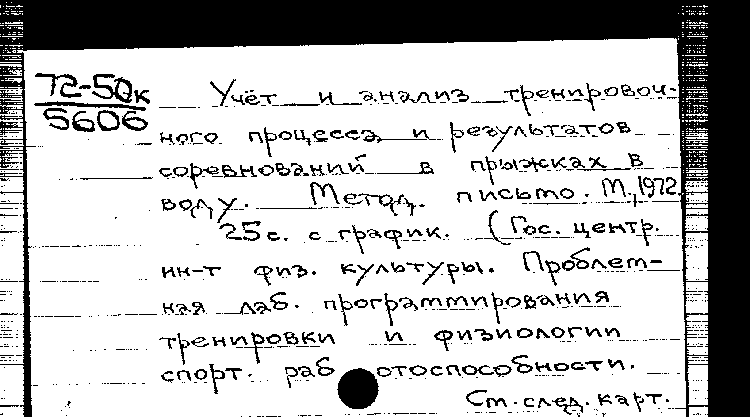 72-50к
5606
Учёт и анализ тренировоч-
ного процесса и результатов
соревнований в прыжках в
воду. Метод. письмо. М., 1972.
25с. с график. (Гос. центр.
ин-т физ. культуры. Проблем-
ная лаб. программирования
тренировки и физиологии
спорт. работоспособности.
См. след. карт.